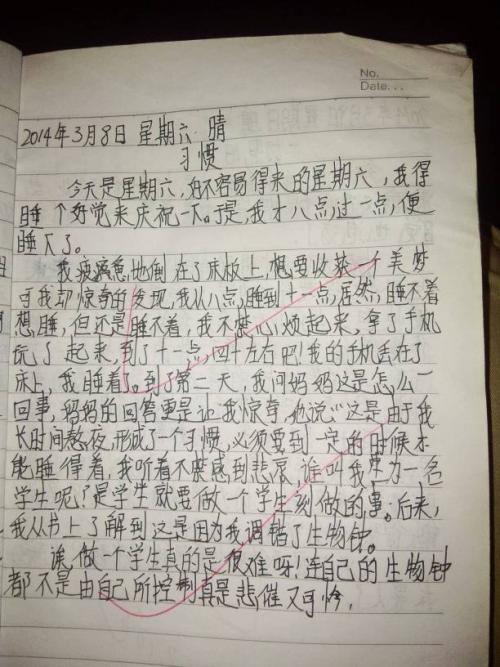 No.
Date...
2014年3月8日 星期六 晴
习惯
今天是星期六,好不容易得来的星期六,我得
睡个好觉来庆祝一下。于是,我才八点过一点,便
睡下了。
我疲惫地倒在了床板上,想要收获一个美梦
可我却惊奇的发现,我从八点,睡到十一点,居然,睡不着
想睡,但还是睡不着,我不禁心烦起来,拿了手机
玩了起来,到了十一点,四十左右吧!我的手机丢在了
床上,我睡着了。到了第二天,我问妈妈这是怎么一
回事,妈妈的回答更是让我惊奇,他说:"这是由于我
长时间熬夜,形成了一个习惯,必须要到一定的时候才
能睡得着,我听着不禁感到悲哀,谁叫我是为一名
学生呢?是学生就要做一个学生刻做的事。后来,
我从书上了解到这是因为我调错了生物钟。
诶,做一个学生真的是很难呀!连自己的生物钟
都不是由自己所控制真是悲催又可怜.